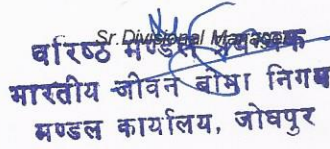 Sr. Divisional Manager
वरिष्ठ मण्डल प्रबन्धक
भारतीय जीवन बीमा निगम
मण्डल कार्यालय, जोधपुर